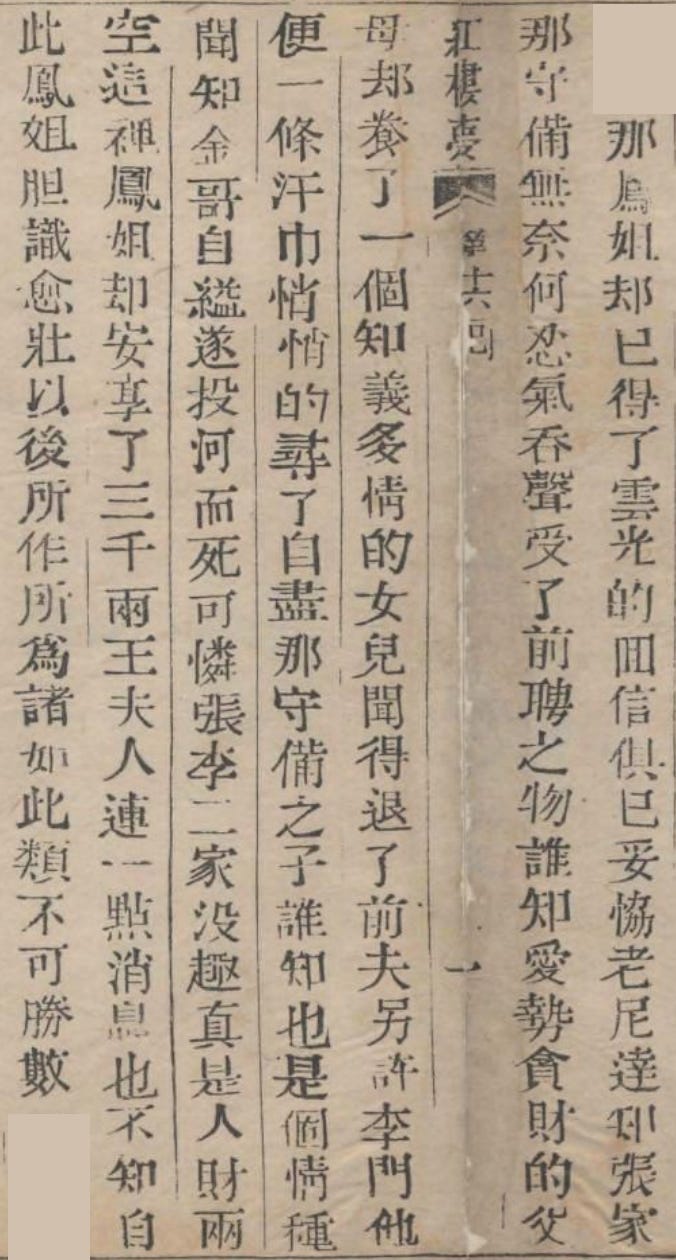 那鳳姐却已得了雲光的回信俱已妥協老尼達知張家
那守備無奈何忍氣吞聲受了前聘之物誰知愛勢貪財的父
紅樓夢 第十六囘 一
母却養了一個知義多情的女兒聞得退了前夫另許李門他
便一條汗巾悄悄的尋了自盡那守備之子誰知也是個情種
聞知金哥自縊遂投河而死可憐張李二家没趣真是人財兩
空這裡鳳姐却安享了三千兩王夫人連一點消息也不知自
此鳳姐胆識愈壯以後所作所爲諸如此類不可勝數